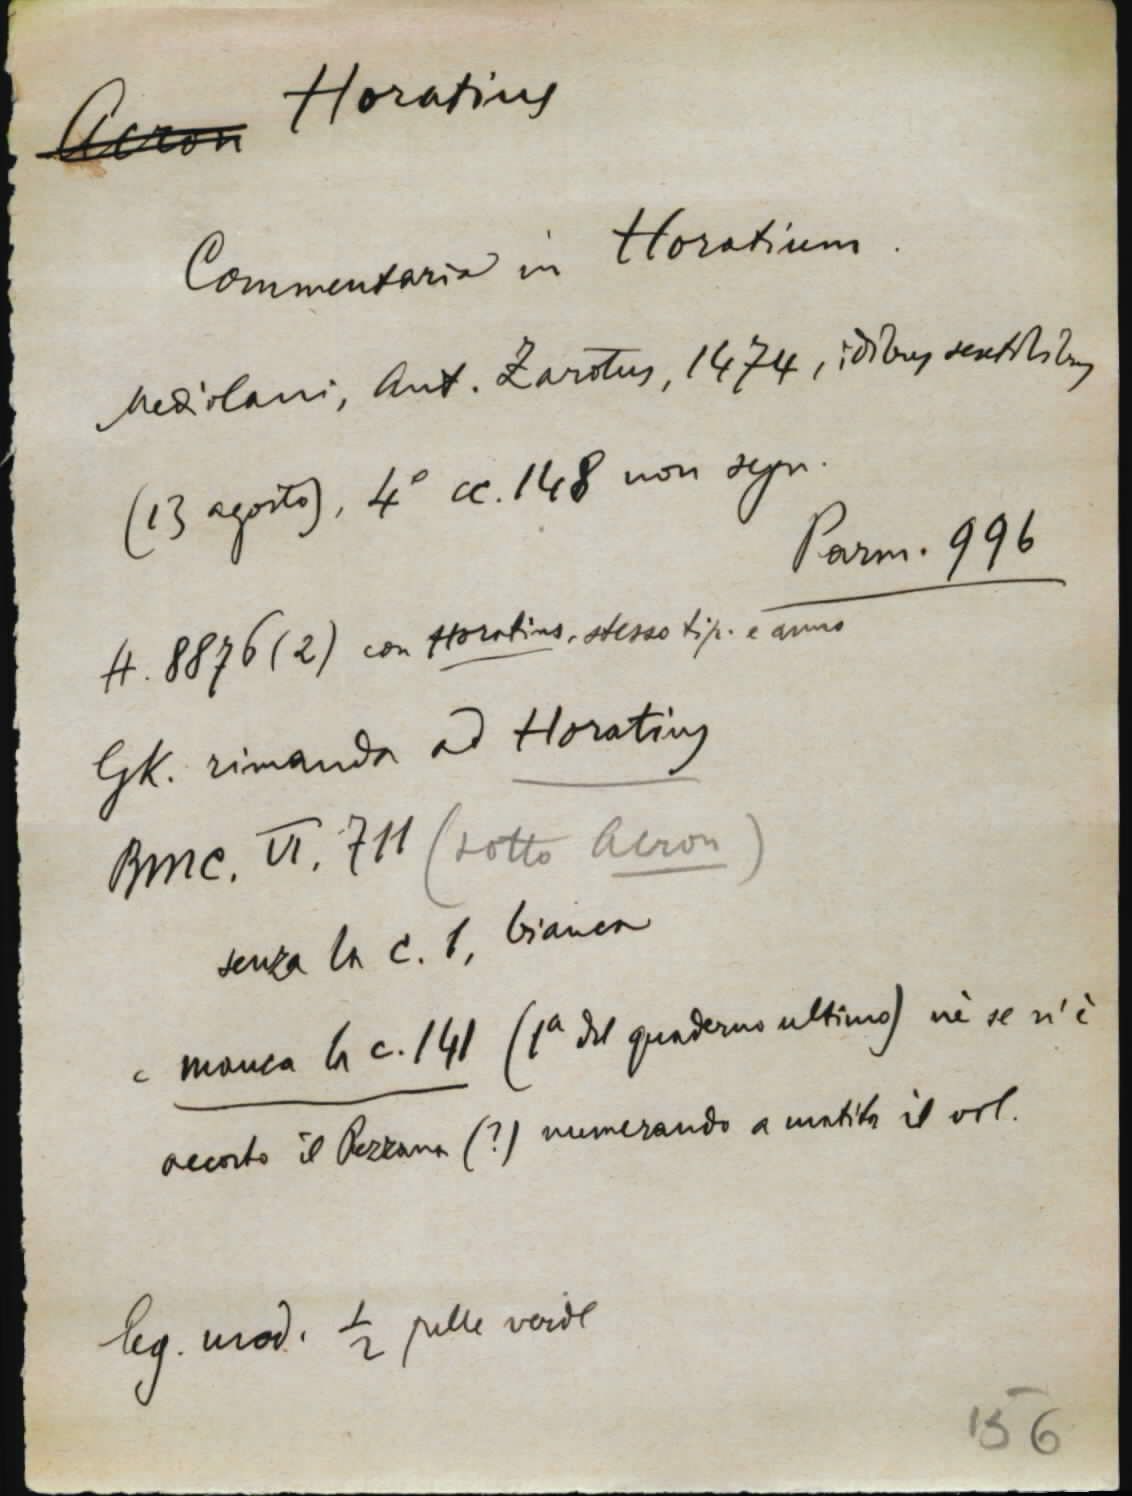 Acron Horatius
Commentaria in Horatium.
Mediolani, Ant. Zarotus, 1474, idibus sextilibus
(13 agosto), 4° cc. 148 non segn.
Parm. 996
H. 8876(2) con Horatius, stesso tip. e anno
GK. rimanda ad Horatius
BMC. VI. 711 (sotto Acron)
senza la c. 1, bianca
manca la c. 141 (1ª del quaderno ultimo) nè se n'è
accorto il Pezzana (?) numerando a matita il vol.
leg. mod. 1/2 pelle verde
156